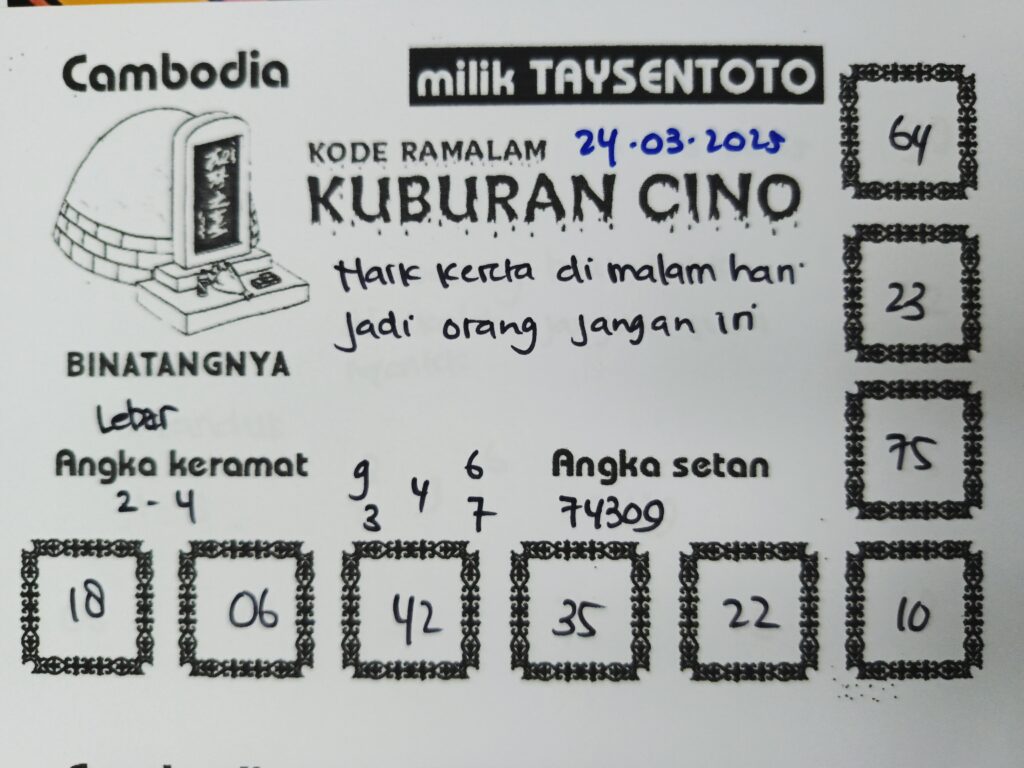 Cambodia
milik TAYSENTOTO
KODE RAMALAM 24.03.2025
KUBURAN CINO
Naik kereta di malam hari
Jadi orang jangan iri
BINATANGNYA
Lebar
Angka keramat
2 - 4
9 6
4
3 7
Angka setan
74309
64
23
75
18 06 42 35 22 10